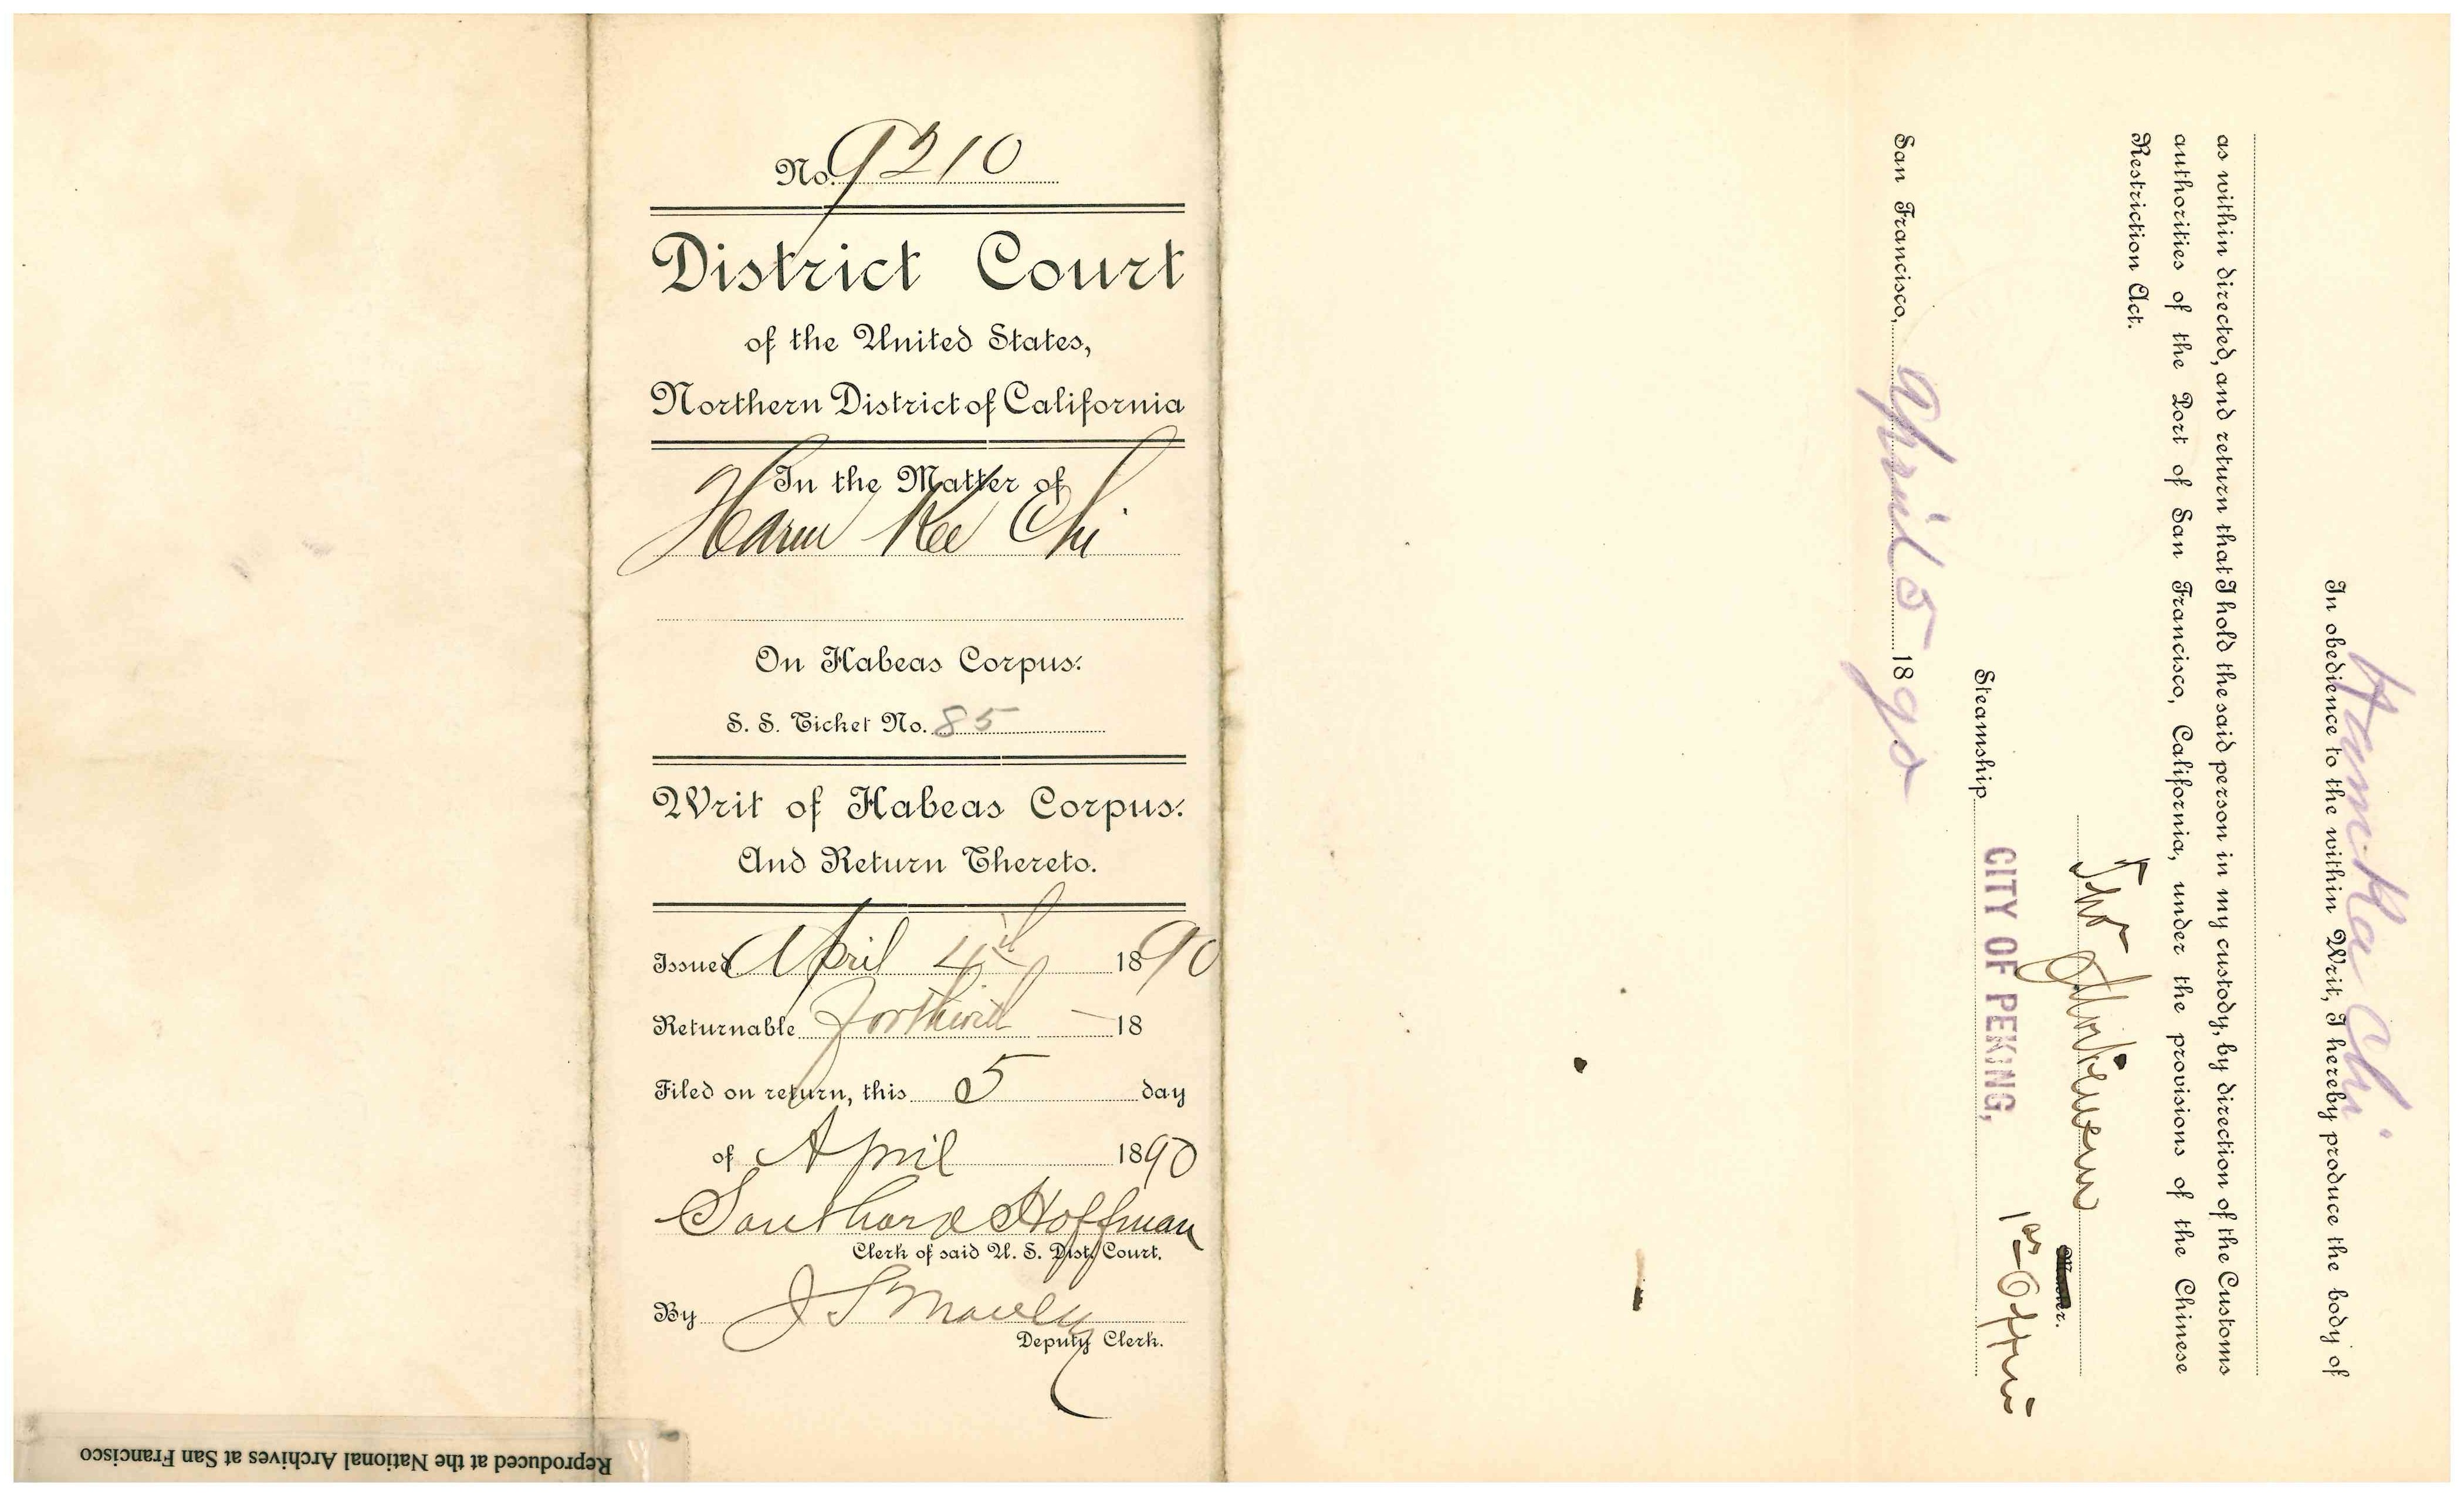 No. 9210
District Court
of the United States,
Northern District of California
In the Matter of
Kee Chi
On Habeas Corpus.
S. S. Ticket No. 85
Writ of Habeas Corpus.
And Return Thereto.
Issued April 4th 1890
Returnable forthwith — 18
Filed on return, this 5 day
of April 1890
Southard Hoffman
Clerk of said U. S. Dist. Court.
By J S Manley
Deputy Clerk.
In obedience to the within Writ, I hereby produce the body of
Chi
as within directed, and return that I hold the said person in my custody, by direction of the Customs
authorities of the Port of San Francisco, California, under the provisions of the Chinese
Restriction Act.
Steamship CITY OF PEKING, 1st Officer
San Francisco, April 5 1890
Reproduced at the National Archives at San Francisco